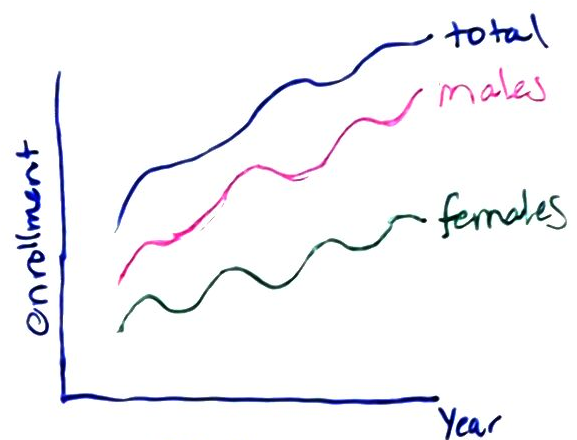 total
males
females
enrollment
Year